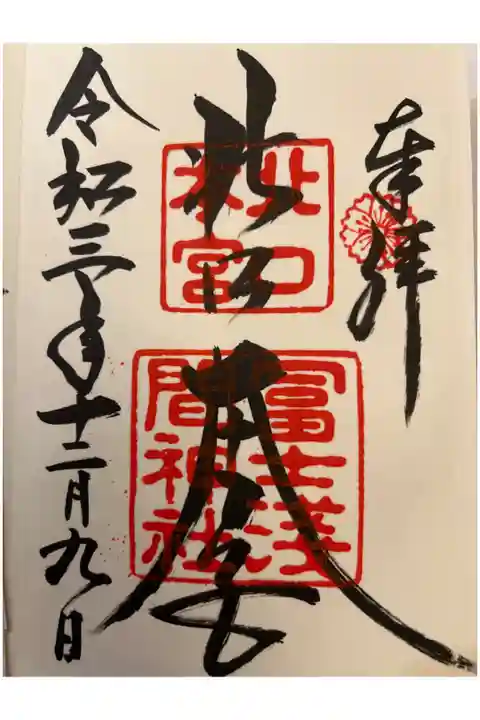 奉拝
北口
本宮
北口本宮
冨士浅
間神社
令和三年十二月九日